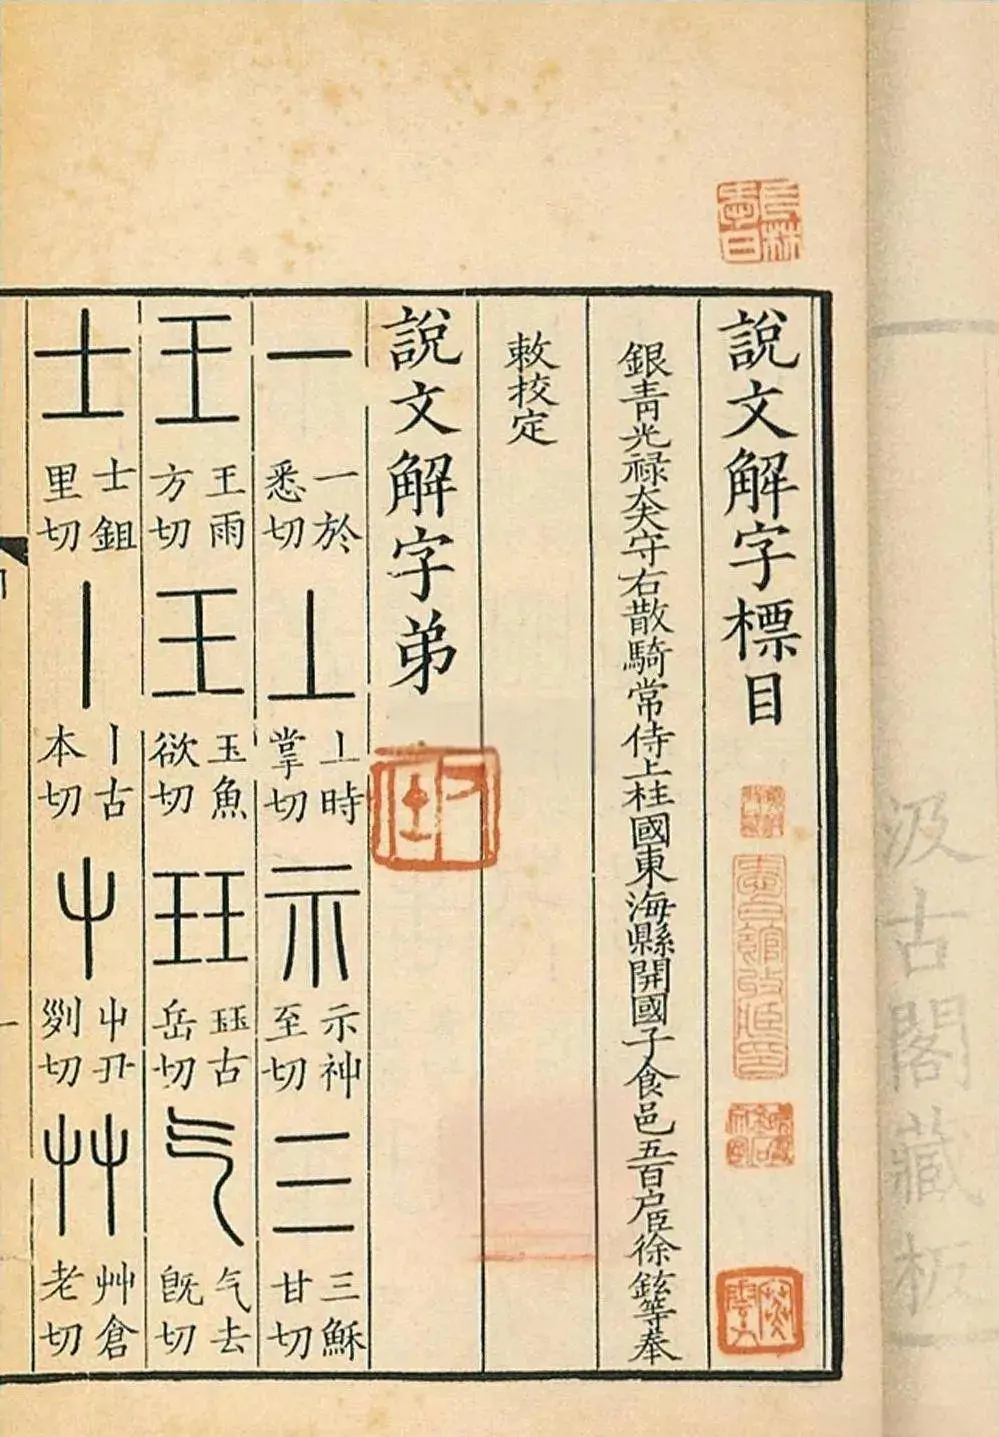 汲古閣藏板
說文解字標目
銀青光祿大夫守右散騎常侍上柱國東海縣開國子食邑五百户臣徐鉉等奉
敕校定
說文解字弟
一 一於悉切 丄 丄時掌切 示 示神至切 三 三穌甘切
王 王雨方切 玉 玉魚欲切 玨 玨古岳切 气 气去旣切
士 士鉏里切 丨 丨古本切 屮 屮丑列切 艸 艸倉老切